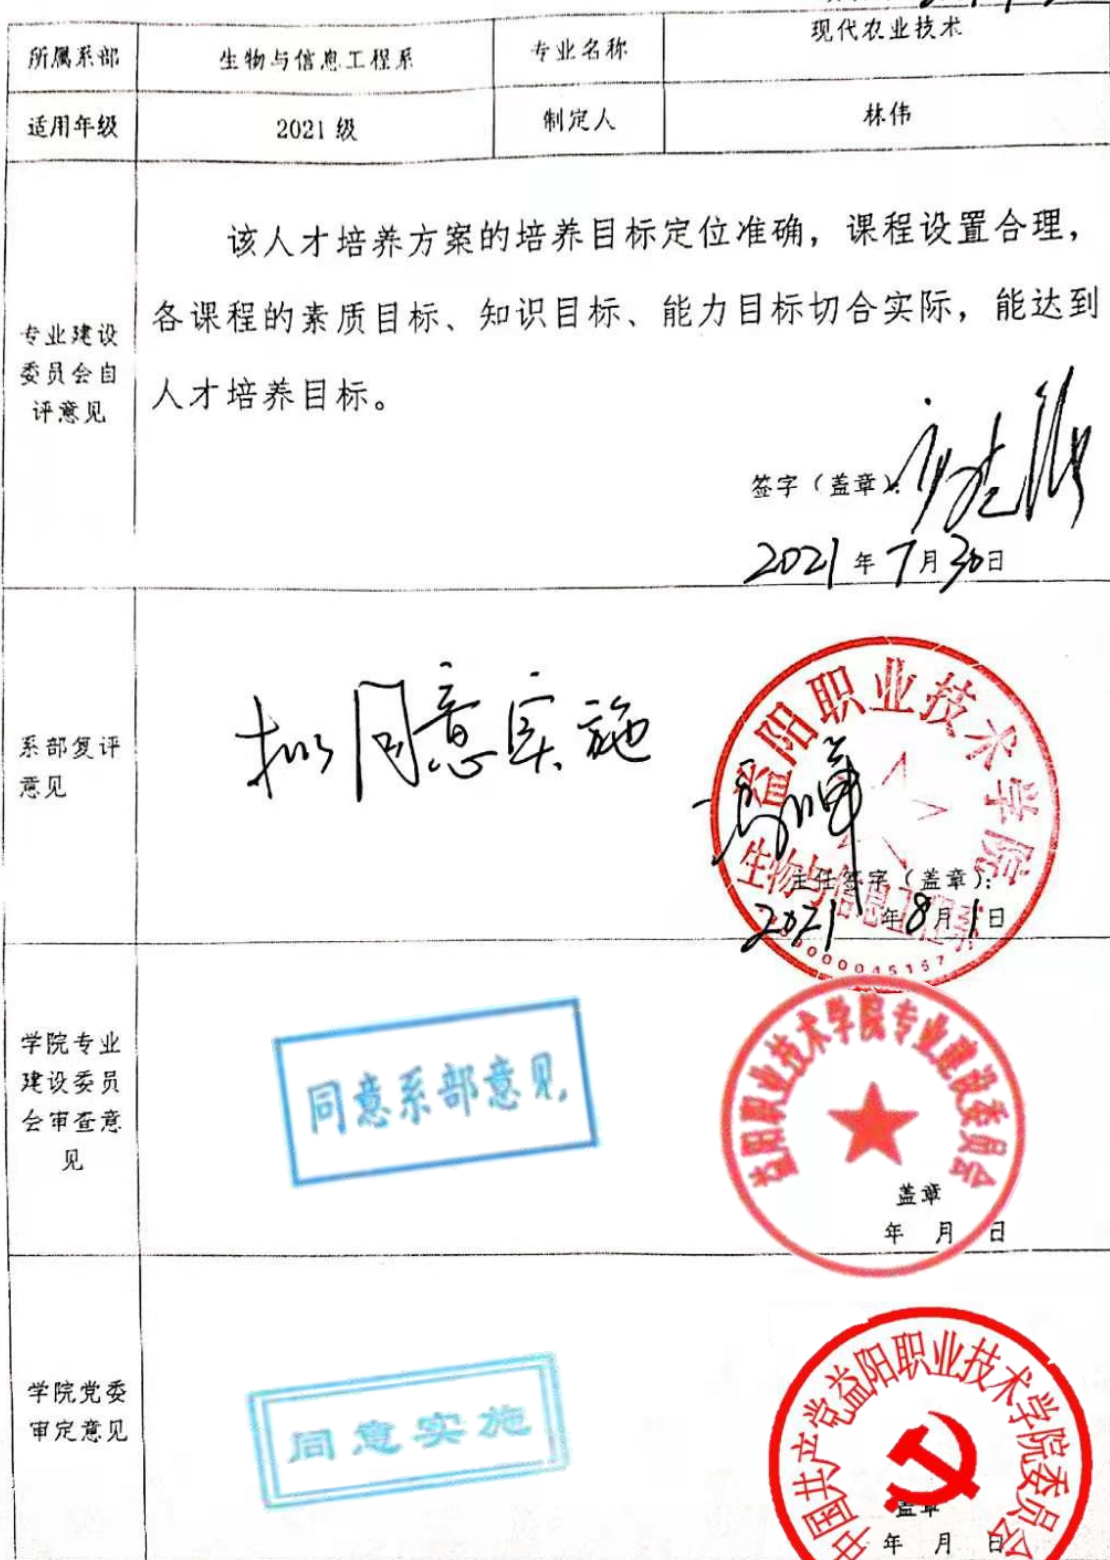 所属系部 生物与信息工程系 专业名称 现代农业技术
适用年级 2021 级 制定人 林伟
专业建设
委员会自
评意见
该人才培养方案的培养目标定位准确，课程设置合理，
各课程的素质目标、知识目标、能力目标切合实际，能达到
人才培养目标。
签字（盖章）：
2021 年 7 月 30 日
系部复评
意见
拟同意实施
益阳职业技术学院
生物与信息工程系
主任签字（盖章）：
2021 年 8 月 1 日
学院专业
建设委员
会审查意
见
同意系部意见.
益阳职业技术学院专业建设委员会
盖章
年 月 日
学院党委
审定意见
同意实施
中国共产党益阳职业技术学院委员会
盖章
年 月 日